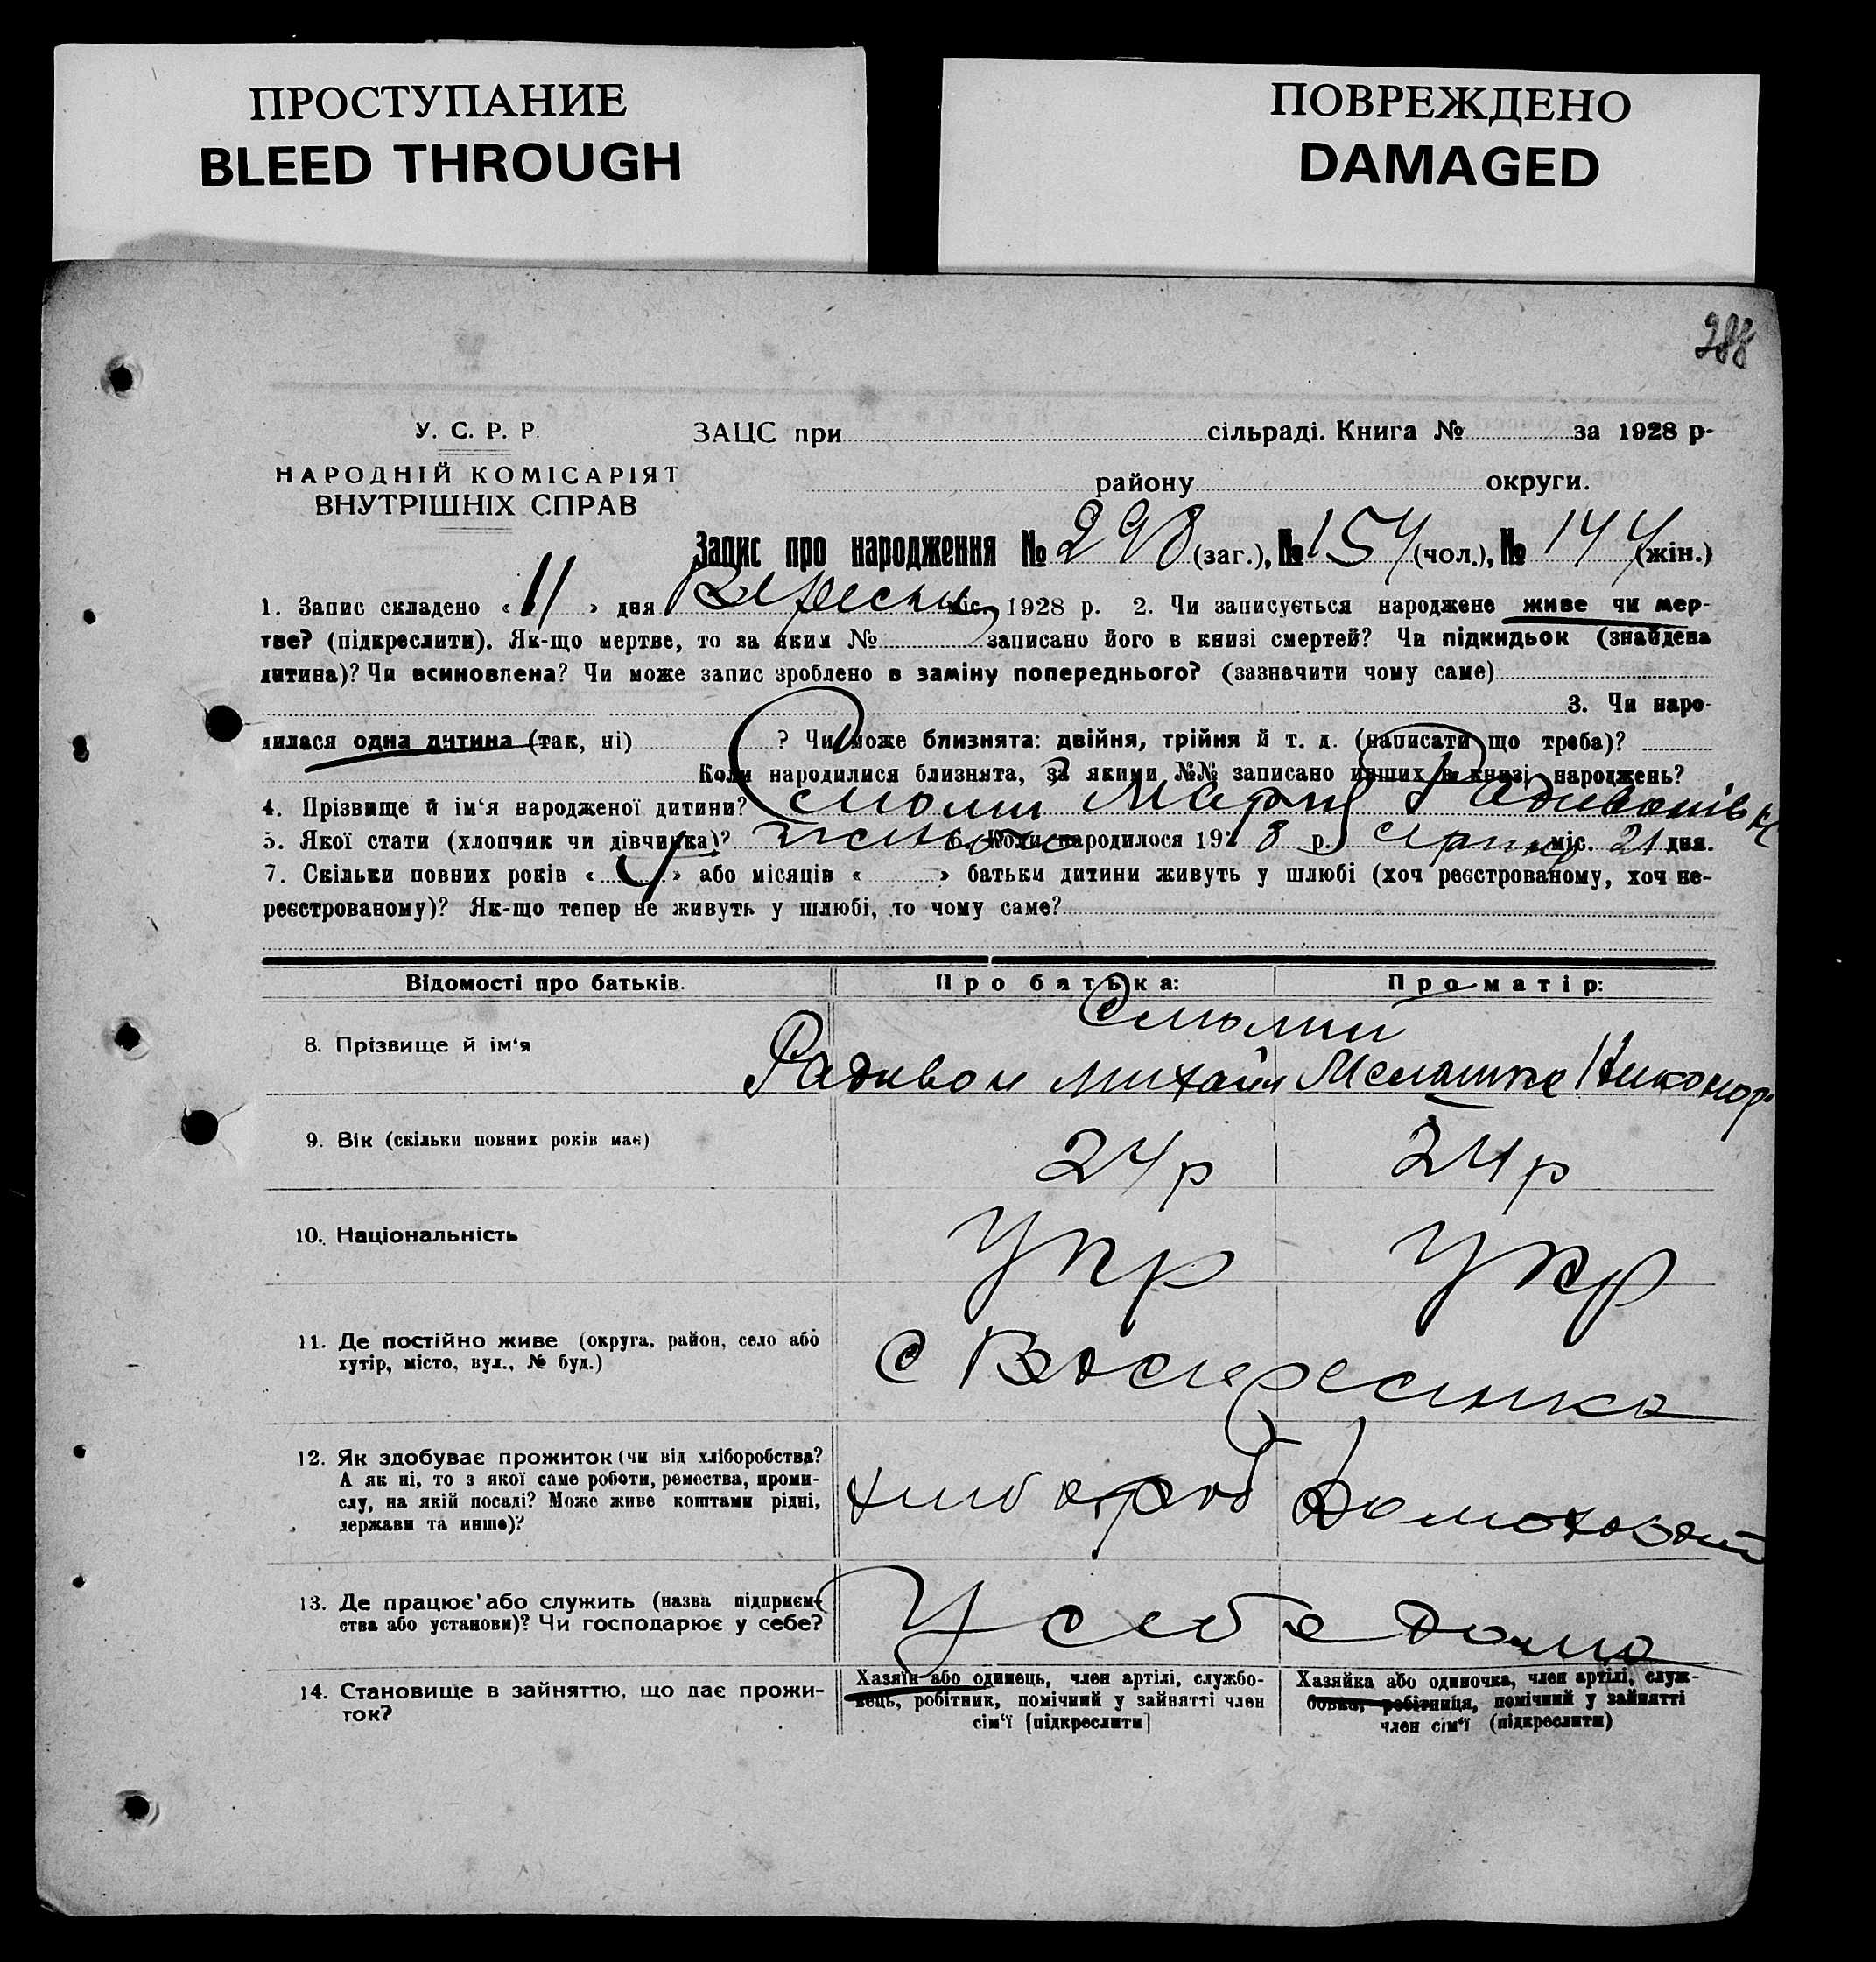 ПРОСТУПАНИЕ
BLEED THROUGH
ПОВРЕЖДЕНО
DAMAGED
288
У. С. Р. Р.
НАРОДНІЙ КОМІСАРІЯТ
ВНУТРІШНІХ СПРАВ
ЗАЦС при сільраді. Книга № за 1928 р-
району округи.
Запис про народження № 298 (заг.), № 154 (чол.), № 144 (жін.)
1. Запис складено « 11 » дня Вересня міс. 1928 р. 2. Чи записується народжене живе чи мер-
тве? (підкреслити). Як-що мертве, то за яким № записано його в книзі смертей? Чи підкидьок (знайдена
дитина)? Чи всиновлена? Чи може запис зроблено в заміну попереднього? (зазначити чому саме)
3. Чи наро-
дилася одна дитина (так, ні) ? Чи може близнята: двійня, трійня й т. д. (написати що треба)?
Коли народилися близнята, за якими №№ записано инших в книзі народжень?
4. Прізвище й ім‘я народженої дитини? Марія Радивонівна
5. Якої стати (хлопчик чи дівчинка)? жіночо 6. Коли народилося 1928 р. серпня міс. 21 дня.
7. Скільки повних років « 4 » або місяців « » батьки дитини живуть у шлюбі (хоч реєстрованому, хоч не-
реєстрованому)? Як-що тепер не живуть у шлюбі, то чому саме?
Відомості про батьків. Про батька: Про матір:
8. Прізвище й ім‘я
Радивон Михайл Мелашка Никонор
9. Вік (скільки повних років має) 24 р 24 р
10. Національність Укр Укр
11. Де постійно живе (округа, район, село або
хутір, місто, вул., № буд.)
с Воскресенка
12. Як здобуває прожиток (чи від хліборобства?
А як ні, то з якої саме роботи, ремества, проми-
слу, на якій посаді? Може живе коштами рідні,
держави та инше)?
хлібороб Домохозяй
13. Де працює або служить (назва підприєм-
ства або установи)? Чи господарює у себе?
У себе дома
14. Становище в зайняттю, що дає прожи-
ток?
Хазяїн або одинець, член артілі, службо-
вець, робітник, помічний у зайнятті член
сім‘ї [підкреслити]
Хазяйка або одиночка, член артілі, служ-
бовка, робітниця, помічний у зайнятті
член сім‘ї (підкреслити)